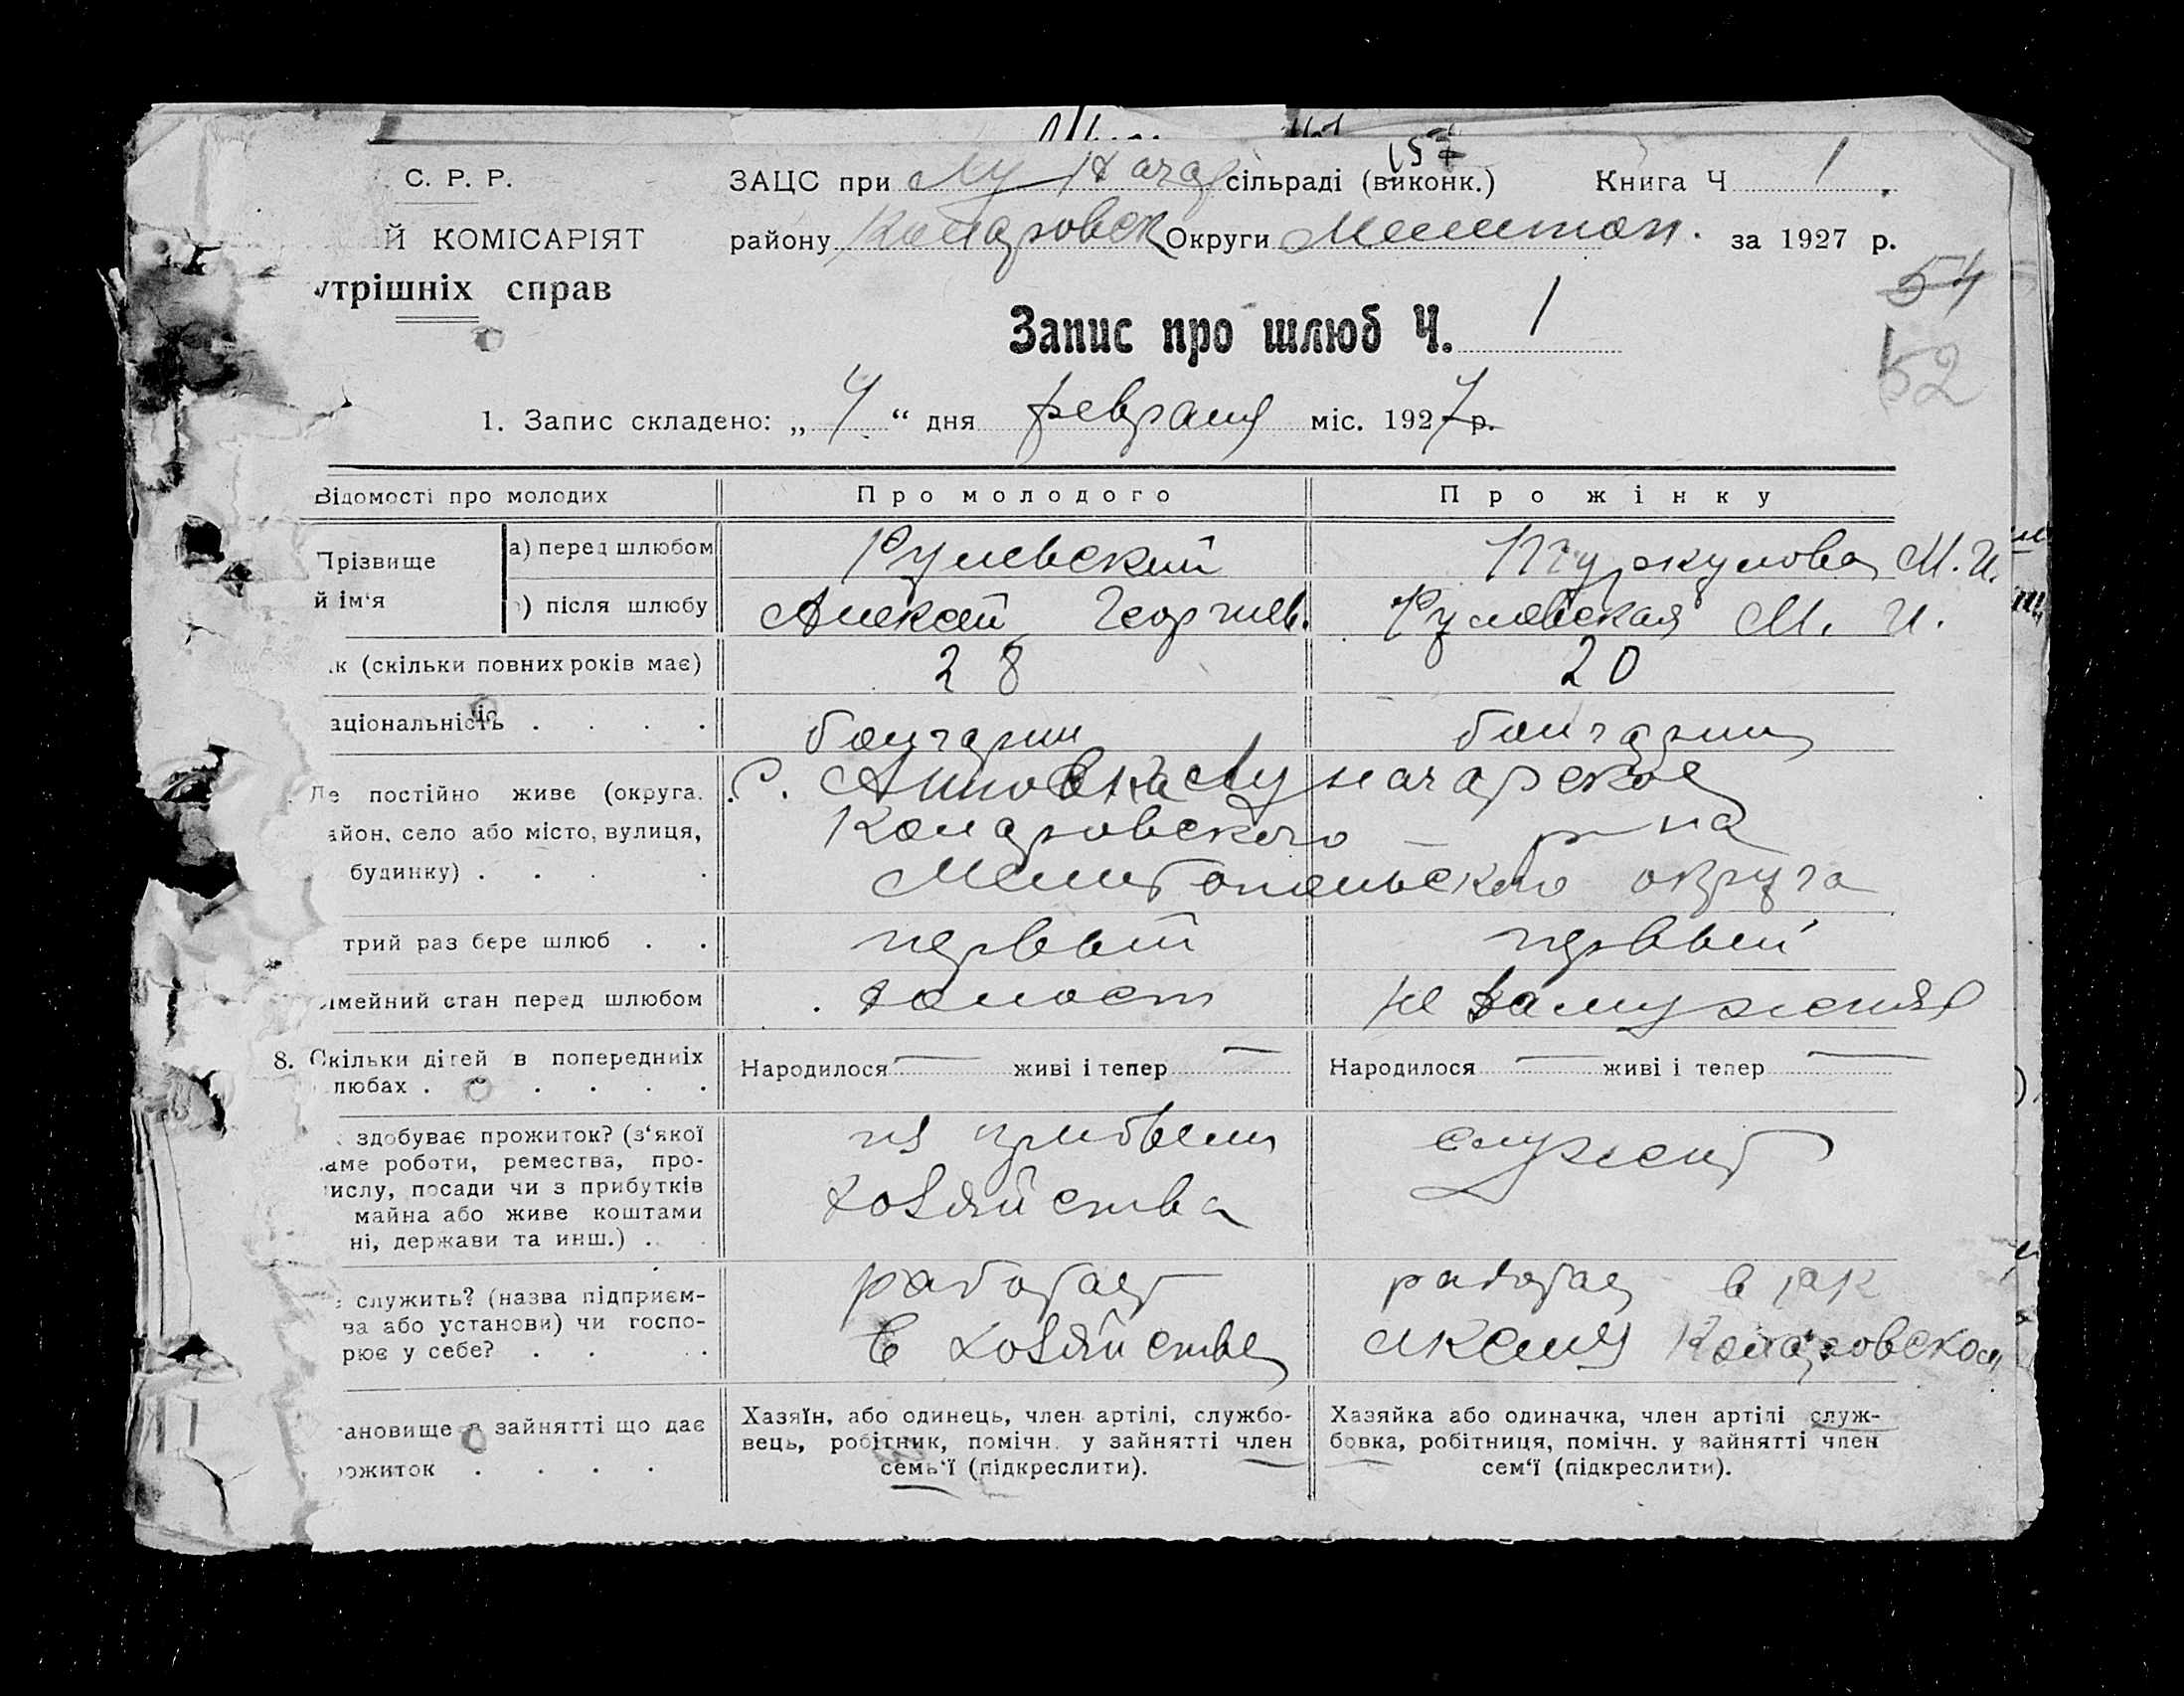 157
С. Р. Р.
ЗАЦС при Луначар сільраді (виконк.) Книга Ч 1
Й КОМІСАРІЯТ
району Коларовск Округи Мелитоп. за 1927 р.
утрішніх справ
54
52
Запис про шлюб Ч. 1
1. Запис складено: „ 4 “ дня февраля міс. 1927 р.
Відомості про молодих
Про молодого
Про жінку
Прізвище й ім‘я
а) перед шлюбом
Рулевский
М. И.
) після шлюбу
Алексей Георгиев.
Рулевская М. И.
к (скільки повних років має)
28
20
аціональність . . . .
болгарин
болгарин
Де постійно живе (округа,
айон, село або місто, вулиця,
будинку) . . . .
с. Анновка Луначарское
Коларовского р-на
Мелитопольского округа
трий раз бере шлюб . .
первый
первый
імейний стан перед шлюбом
холост
не замужняя
8. Скільки дітей в попередніх
любах . . . . . .
Народилося — живі і тепер —
Народилося — живі і тепер —
здобуває прожиток? (з‘якої
аме роботи, ремества, про-
ислу, посади чи з прибутків
майна або живе коштами
ні, держави та инш.) .
из прибыли
хозяйства
служит
служить? (назва підприєм-
ва або установи) чи госпо-
рює у себе? . . .
работает
в хозяйстве
работает в
Коларовском
тановище в зайнятті що дає
рожиток . . . .
Хазяїн, або одинець, член артілі, службо-
вець, робітник, помічн. у зайнятті член
семь‘ї (підкреслити).
Хазяйка або одиначка, член артілі служ-
бовка, робітниця, помічн. у зайнятті член
сем‘ї (підкреслити).